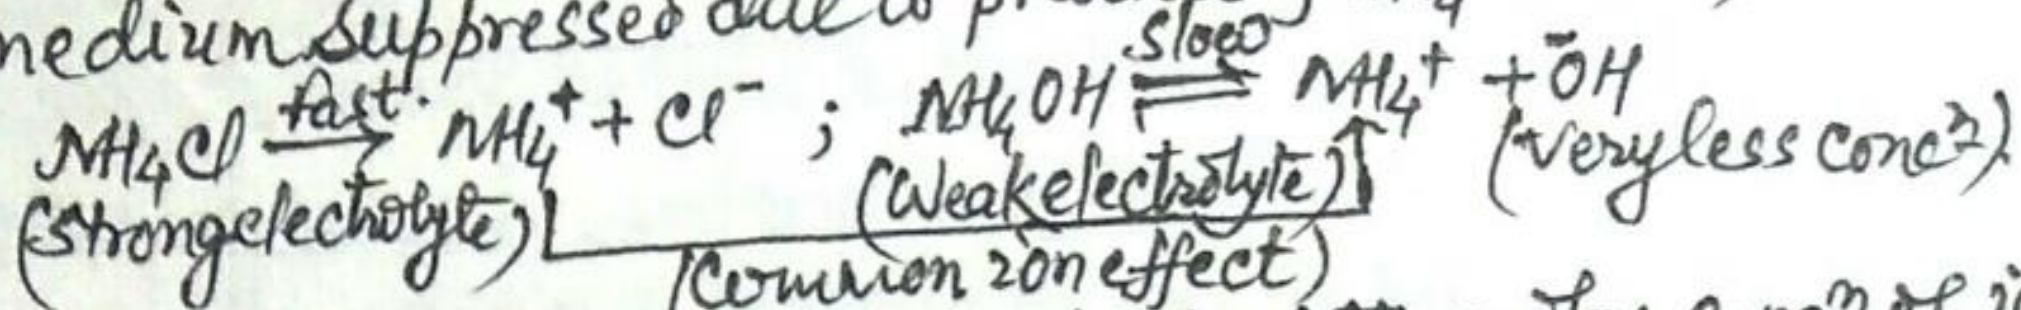 medium suppressed due to
NH₄Cl —fast→ NH₄⁺ + Cl⁻ ; NH₄OH ⇌ slow NH₄⁺ + ⁻OH
(Strong electrolyte) (Weak electrolyte) (very less concⁿ)
(Common ion effect)